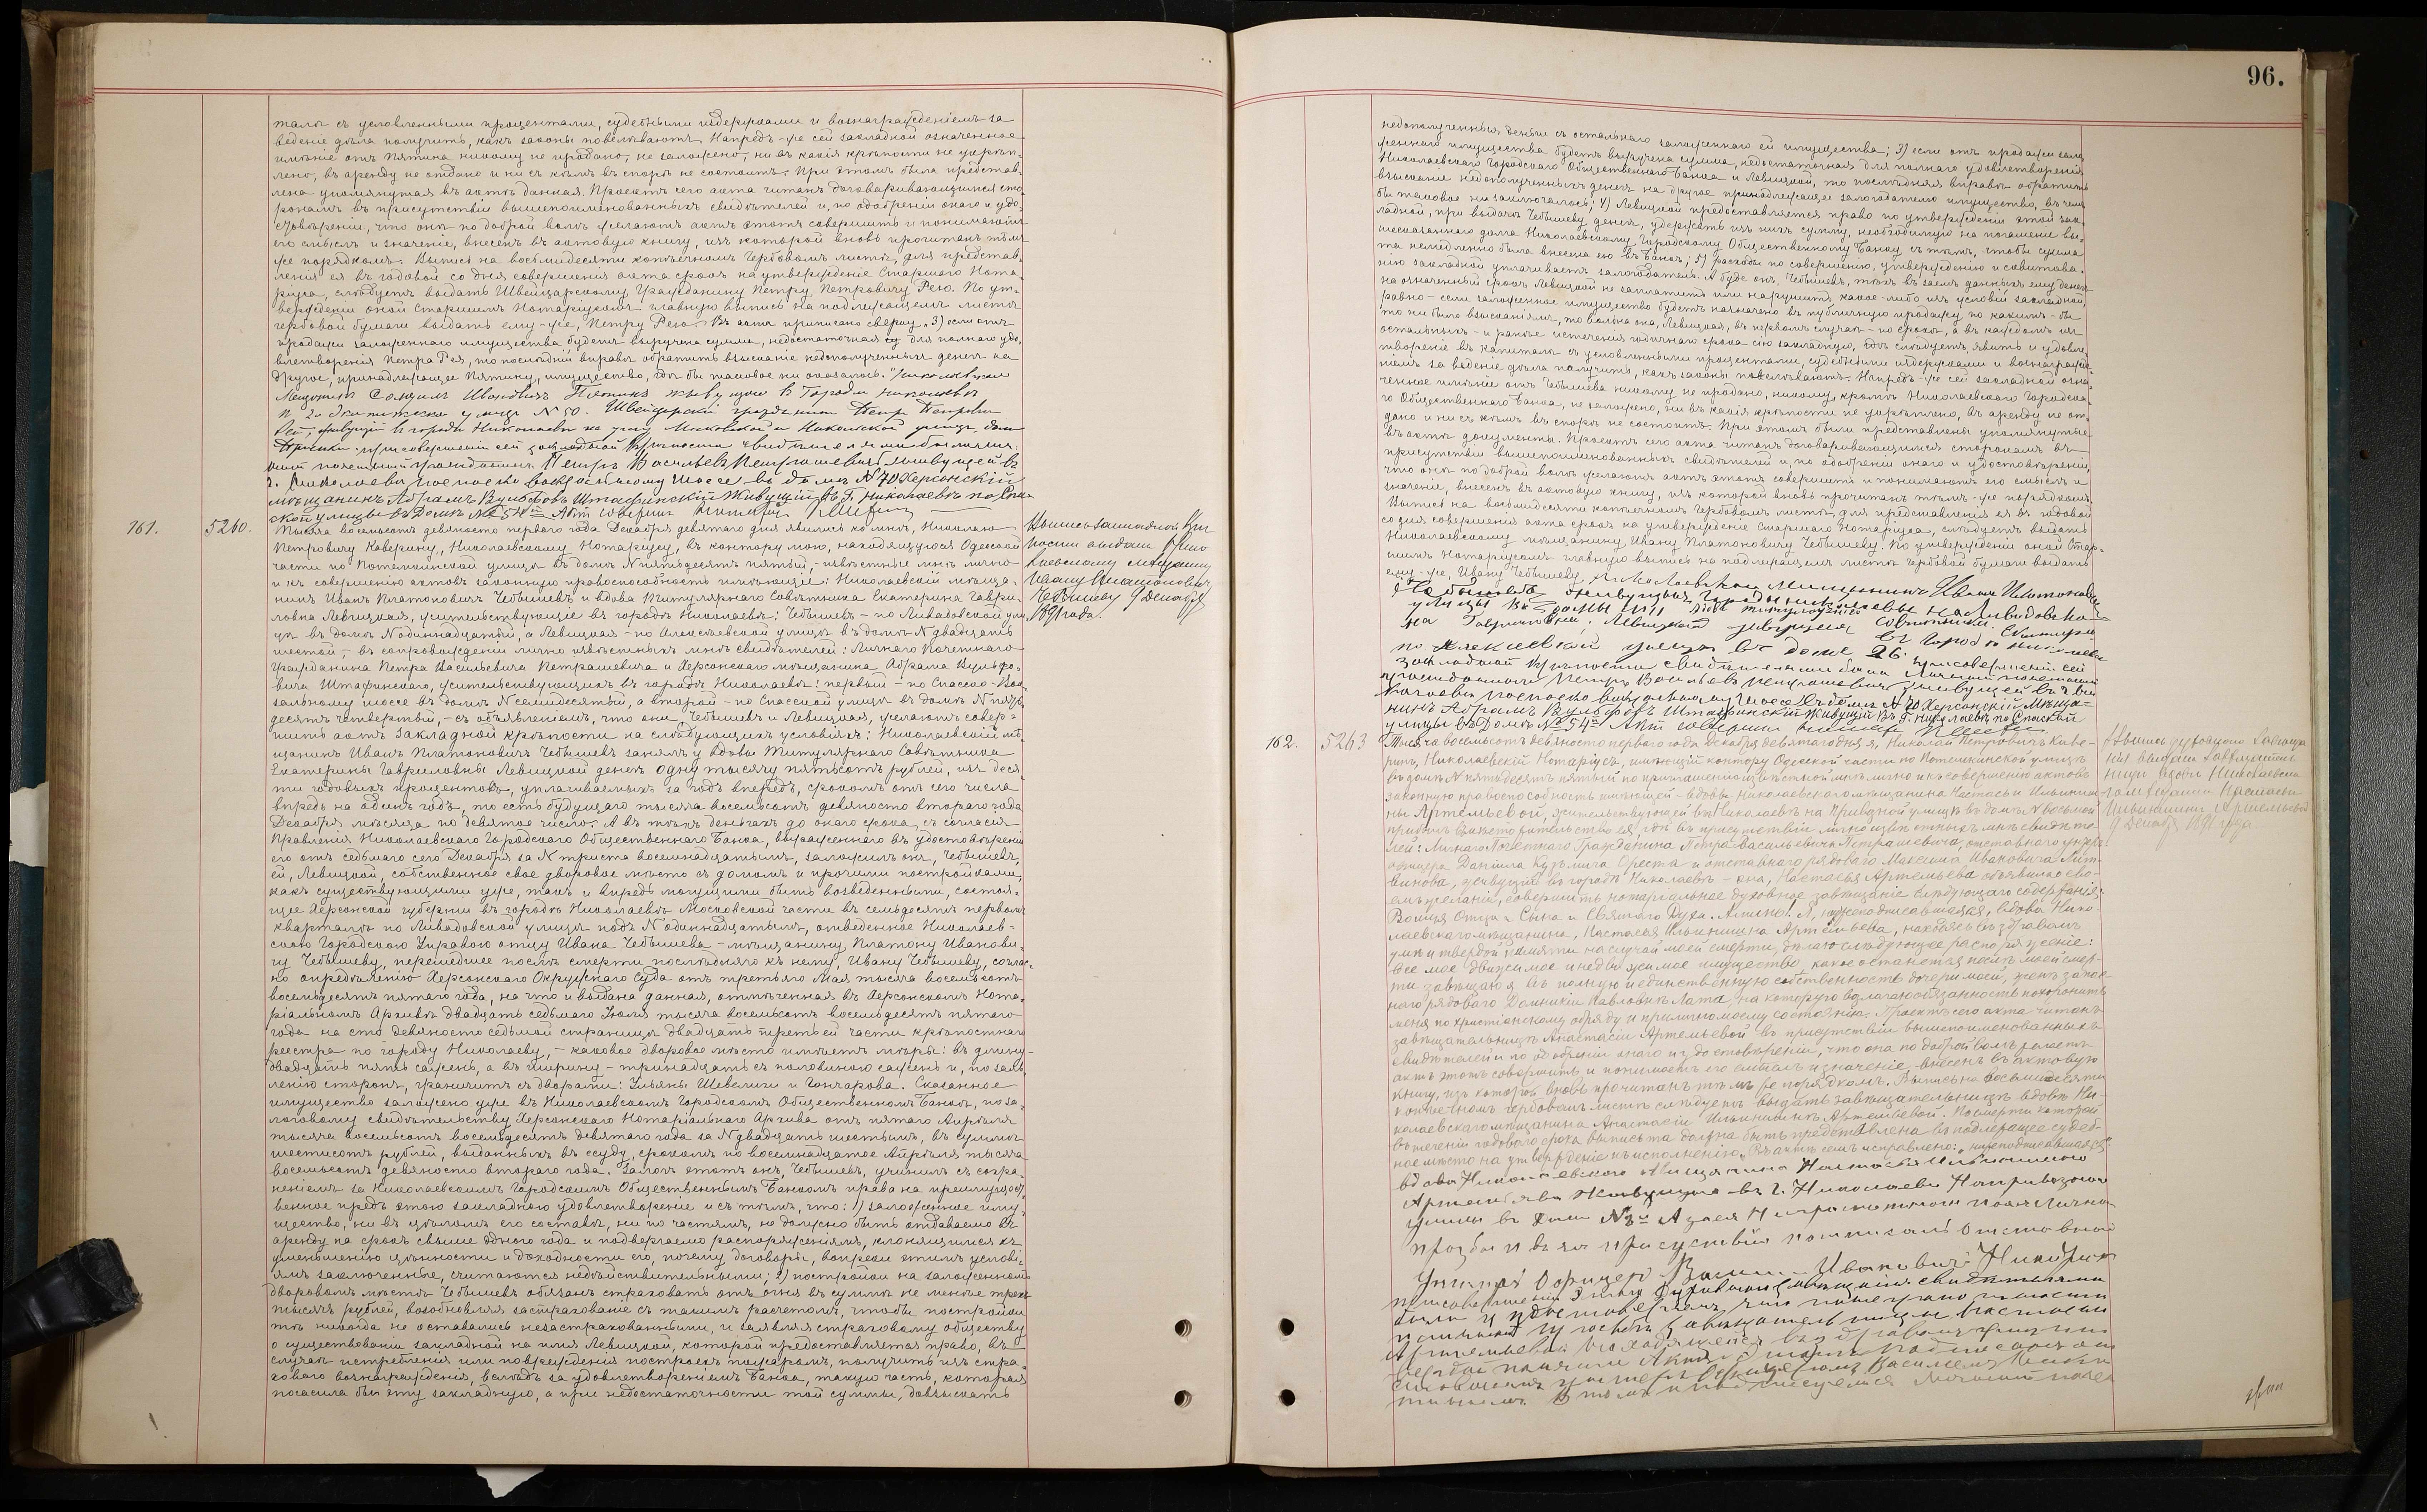 96.
талъ съ условленными процентами, судебными издержками и вознагражденіемъ за
веденіе дѣла получить, какъ законы повелѣваютъ. Напредъ-же сей закладной означенное
имѣніе отъ Пятина никому не продано, не заложено, ни въ какія крѣпости не укрѣп-
лено, въ аренду не отдано и ни съ кѣмъ въ спорѣ не состоитъ. При этомъ была представ-
лена упомянутая въ актѣ данная. Проектъ сего акта читанъ договаривающимся сто-
ронамъ въ присутствіи вышепоименованныхъ свидѣтелей и, по одобреніи онаго и удо-
стовѣреніи, что онѣ по доброй волѣ желаютъ актъ этотъ совершить и понимаютъ
его смыслъ и значеніе, внесенъ въ актовую книгу, изъ которой вновь прочитанъ тѣмъ
же порядкомъ. Выпись на восьмидесяти копѣечномъ гербовомъ листѣ, для представ-
ленія ея въ годовой со дня совершенія акта срокъ на утвержденіе Старшаго Нота-
ріуса, слѣдуетъ выдать Швейцарскому Гражданину Петру Петровичу Рею. По ут-
вержденіи оной Старшимъ Нотаріусомъ главную выпись на надлежащемъ листѣ
гербовой бумаги выдать ему-же, Петру Рею. Въ актѣ приписано сверху „3) если отъ
продажи заложеннаго имущества будетъ выручена сумма, недостаточная для полнаго удо-
влетворенія Петра Рея, то послѣдній вправѣ обратить взысканіе недополученныхъ денегъ на
другое, принадлежащее Пятину, имущество, гдѣ бы таковое ни оказалось." Николаевскій
Мещанинъ Ивановичъ Пятинъ живущій в городи николаевѣ
улицѣ № 50. Швейцарскій гражданинъ Петръ Петровичъ
Рей, живущій въ городѣ Николаевѣ на углу Московской и Никольской улицъ, домъ
при совершеніи сей закладной крѣпости свидѣтелями были личн.
ный почетный гражданинъ Петръ Васильевъ Петрашевичъ живущей въ
г. Николаевѣ по спаско вокзальному шоссе въ домѣ № 70 Херсонскій
мѣщанинъ Абрамъ Вульфовъ Штафинскій живущій въ г. Николаевѣ по Спас-
ской улицы въ Домѣ № 54й Актъ совершилъ Нотаріусъ
161.
5260.
Тысяча восемьсотъ девяносто перваго года Декабря девятаго дня явились ко мнѣ, Николаю
Петровичу Каверину, Николаевскому Нотаріусу, въ контору мою, находящуюся Одесской
части по Потемкинской улицѣ въ домѣ № пятьдесятъ пятый, - извѣстные мнѣ лично
и къ совершенію актовъ законную правоспособность имѣющіе: Николаевскій мѣща-
нинъ Иванъ Платоновичъ Чебышевъ и вдова Титулярнаго Совѣтника Екатерина Гаври-
ловна Левицкая, жительствующіе въ городѣ Николаевѣ: Чебышевъ - по Ливадовской ули-
цѣ въ домѣ № одиннадцатый, а Левицкая - по Алексѣевской улицѣ въ домѣ № двадцать
шестой, - въ сопровожденіи лично извѣстныхъ мнѣ свидѣтелей: Личнаго Почетнаго
Гражданина Петра Васильевича Петрашевича и Херсонскаго мѣщанина Абрама Вульфо-
вича Штафинскаго, жительствующихъ въ городѣ Николаевѣ: первый - по Спасско-Вок-
зальному шоссе въ домѣ № семидесятый, а второй - по Спасской улицѣ въ домѣ № пять-
десятъ четвертый, - съ объявленіемъ, что они, Чебышевъ и Левицкая, желаютъ совер-
шить актъ закладной крѣпости на слѣдующихъ условіяхъ: Николаевскій мѣ-
щанинъ Иванъ Платоновичъ Чебышевъ занялъ у вдовы Титулярнаго Совѣтника
Екатерины Гавриловны Левицкой денегъ одну тысячу пятьсотъ рублей, изъ деся-
ти годовыхъ процентовъ, уплачиваемыхъ за годъ впередъ, срокомъ отъ сего числа
впредь на одинъ годъ, то есть будущаго тысяча восемьсотъ девяносто втораго года
Декабря мѣсяца по девятое число. А въ тѣхъ деньгахъ до онаго срока, съ согласія
Правленія Николаевскаго Городскаго Общественнаго Банка, выраженнаго въ удостовѣреніи
его отъ седьмаго сего Декабря за № триста восемнадцатымъ, заложилъ онъ, Чебышевъ,
ей, Левицкой, собственное свое дворовое мѣсто съ домомъ и прочими постройками,
какъ существующими уже, такъ и впредь могущими быть возведенными, состоя-
щее Херсонской губерніи въ городѣ Николаевѣ Московской части въ семьдесятъ первомъ
кварталѣ по Ливадовской улицѣ подъ № одиннадцатымъ, отведенное Николаев-
скою Городскою Управою отцу Ивана Чебышева - мѣщанину Платону Иванови-
чу Чебышеву, перешедшее послѣ смерти послѣдняго къ нему, Ивану Чебышеву, соглас-
но опредѣленію Херсонскаго Окружнаго Суда отъ третьяго Мая тысяча восемьсотъ
восемьдесятъ пятаго года, на что и выдана данная, отмѣченная въ Херсонскомъ Нота-
ріальномъ Архивѣ двадцать седьмаго Іюня тысяча восемьсотъ восемьдесятъ пятаго
года на сто девяносто седьмой страницѣ двадцать третьей части крѣпостнаго
реестра по городу Николаеву, - каковое дворовое мѣсто имѣетъ мѣры: въ длину
двадцать пять саженъ, а въ ширину - тринадцать съ половиною саженъ и, по заяв-
ленію сторонъ, граничитъ съ дворами: Ульяны Шевелихи и Гончарова. Сказанное
имущество заложено уже въ Николаевскомъ Городскомъ Общественномъ Банкѣ, по за-
логовому свидѣтельству Херсонскаго Нотаріальнаго Архива отъ пятаго Апрѣля
тысяча восемьсотъ восемьдесятъ девятаго года за № двадцать шестымъ, въ суммѣ
шестисотъ рублей, выданныхъ въ ссуду, срокомъ по восемнадцатое Апрѣля тысяча
восемьсотъ девяносто втораго года. Залогъ этотъ онъ, Чебышевъ, учинилъ съ сохра-
неніемъ за Николаевскимъ Городскимъ Общественнымъ Банкомъ права на преимущест-
венное предъ этою закладною удовлетвореніе и съ тѣмъ, что: 1) заложенное иму-
щество, ни въ цѣломъ его составѣ, ни по частямъ, не должно быть отдаваемо въ
аренду на срокъ свыше одного года и подвергаемо распоряженіямъ, клонящимся къ
уменьшенію цѣнности и доходности его, почему договоры, вопреки этимъ услові-
ямъ заключенные, считаются недѣйствительными; 2) постройки на заложенномъ
дворовомъ мѣстѣ Чебышевъ обязанъ страховать отъ огня въ суммѣ не менѣе трехъ
тысячъ рублей, возобновляя застрахованіе съ такимъ расчетомъ, чтобы постройки
тѣ никогда не оставались незастрахованными, и заявляя страховому обществу
о существованіи закладной на имя Левицкой, которой предоставляется право, въ
случаѣ истребленія или поврежденія построекъ пожаромъ, получить изъ стра-
ховаго вознагражденія, вслѣдъ за удовлетвореніемъ Банка, такую часть, которая
погасила бы эту закладную, а при недостаточности той суммы, довзыскать
Выпись закладной крѣ-
пости выдана Нико-
лаевскому мѣщанину
Ивану Платоновичу
Чебышеву 9 Декабря
1891 года.
недополученныя деньги съ остальнаго заложеннаго ей имущества; 3) если отъ продажи зало-
женнаго имущества будетъ выручена сумма, недостаточная для полнаго удовлетворенія
Николаевскаго Городскаго Общественнаго Банка и Левицкой, то послѣдняя вправѣ обратить
взысканіе недополученныхъ денегъ на другое принадлежащее залогодателю имущество, въ чемъ
бы таковое ни заключалось; 4) Левицкой предоставляется право по утвержденіи этой зак-
ладной, при выдачѣ Чебышеву денегъ, удержать изъ нихъ сумму, необходимую на погашеніе вы-
шесказаннаго долга Николаевскому Городскому Общественному Банку съ тѣмъ, чтобы сумма
та немедленно была внесена ею въ Банкъ; 5) расходы по совершенію, утвержденію и сквитова-
нію закладной уплачиваетъ залогодатель. А буде онъ, Чебышевъ, тѣхъ въ заемъ данныхъ ему денегъ
на означенный срокъ Левицкой не заплатитъ или нарушитъ какое-либо изъ условій закладной,
равно - если заложенное имущество будетъ назначено въ публичную продажу по какимъ-бы
то ни было взысканіямъ, то вольна она, Левицкая, въ первомъ случаѣ - по срокѣ, а въ каждомъ изъ
остальныхъ - и ранѣе истеченія годичнаго срока сію закладную, гдѣ слѣдуетъ, явить и удовле-
твореніе въ капиталѣ съ условленными процентами, судебными издержками и вознагражде-
ніемъ за веденіе дѣла получить, какъ законы повелѣваютъ. Напредъ-же сей закладной озна-
ченное имѣніе отъ Чебышева никому не продано, никому, кромѣ Николаевскаго Городска-
го Общественнаго Банка, не заложено, ни въ какія крѣпости не укрѣплено, въ аренду не от-
дано и ни съ кѣмъ въ спорѣ не состоитъ. При этомъ были представлены упомянутые
въ актѣ документы. Проектъ сего акта читанъ договаривающимся сторонамъ въ
присутствіи вышепоименованныхъ свидѣтелей и, по одобреніи онаго и удостовѣреніи,
что онѣ по доброй волѣ желаютъ актъ этотъ совершить и понимаютъ его смыслъ и
значеніе, внесенъ въ актовую книгу, изъ которой вновь прочитанъ тѣмъ-же порядкомъ.
Выпись на восьмидесяти копѣечномъ гербовомъ листѣ, для представленія ея въ годовой
со дня совершенія акта срокъ на утвержденіе Старшаго Нотаріуса, слѣдуетъ выдать
Николаевскому мѣщанину Ивану Платоновичу Чебышеву. По утвержденіи оной Стар-
шимъ Нотаріусомъ главную выпись на надлежащемъ листѣ гербовой бумаги выдать
ему-же, Ивану Чебышеву. Николаевской Мищанинъ Иванъ Платоновъ
Чебышевъ живущий городи николаевы на Ливадовской
улицы в домы №11 вдова титулярнаго Советника Екатери-
на Гавриловна Левицкая живущая въ Городѣ Николаевѣ
по Алексѣевской улицѣ въ домѣ 26. При совершеніи сей
закладной крѣпости свидѣтелями были Личный почетный
гражданинъ Петръ Васильевъ Петрашевичъ живущей въ г. Ни-
колаевѣ по спаско вокзальному шоссе въ домѣ № 70 Херсонскій Мѣща-
нинъ Абрамъ Вульфовъ Штафинскій живущій въ г. Николаевѣ по Спаской
улицы въ Домѣ № 54й Актъ совершилъ Нотаріусъ
162.
5263
Тысяча восемьсотъ девяносто перваго года Декабря девятаго дня я, Николай Петровичъ Каве-
ринъ, Николаевскій Нотаріусъ, имѣющій контору Одесской части по Потемкинской улицѣ
въ домѣ № пятьдесятъ пятый по приглашенію извѣстной мнѣ лично и къ совершенію актовъ
законную правоспособность имѣющей - вдовы Николаевскаго мѣщанина Настасьи Ильинич-
ны Артемьевой, жительствующей въ г. Николаевѣ на Привозной улицѣ въ домѣ № восьмой
прибылъ въ жительство ея, гдѣ въ присутствіи лично извѣстныхъ мнѣ свидѣте-
лей: Личнаго Почетнаго Гражданина Петра Васильевича Петрашевича, отставнаго унтеръ
офицера Даніила Кузьмича Ореста и отставнаго рядоваго Максима Ивановича Лит-
винова, живущихъ въ городѣ Николаевѣ - она, Настасья Артемьева объявила о сво-
емъ желаніи, совершить нотаріальное духовное завѣщаніе слѣдующаго содержанія:
Во имя Отца и Сына и Святаго Духа. Аминь. Я, нижеподписавшаяся, вдова Нико-
лаевскаго мѣщанина, Настасья Ильинична Артемьева, находясь въ здравомъ
умѣ и твердой памяти на случай моей смерти, дѣлаю слѣдующее распоряженіе:
Все мое движимое и недвижимое имущество, какое останется послѣ моей смер-
ти завѣщаю я въ полную и единственную собственность дочери моей, женѣ запас-
наго рядоваго Домникіи Павловнѣ Лата, на которую возлагаю обязанность похоронить
меня по христіанскому обряду и приличному моему состоянію. Проектъ сего акта читанъ
завѣщательницѣ Анастасіи Артемьевой въ присутствіи вышепоименованныхъ
свидѣтелей и по одобреніи онаго и удостовѣреніи, что она по доброй волѣ желаетъ
актъ этотъ совершить и понимаетъ его смыслъ и значеніе, внесенъ въ актовую
книгу, изъ которой вновь прочитанъ тѣмъ же порядкомъ. Выпись на восьмидесяти
копѣечномъ гербовомъ листѣ слѣдуетъ выдать завѣщательницѣ вдовѣ Ни-
колаевскаго мѣщанина Анастасіи Ильиничнѣ Артемьевой. По смерти которой
въ теченіи годоваго срока выпись та должна быть представлена въ подлежащее судеб-
ное мѣсто на утвержденіе къ исполненію. Въ актѣ семъ исправлено: „нижеподписавшаяся"
вдова Николаевского Мищанина Настасья Ильинишна
Артемьева Живущая въ г. Николаеви На привозной
улицы въ доми № 8й А за ея Неграмотною по ея Личной
прозбы и в ея присуствіи росписался Отставной
Унтеръ Офицеръ Ивановичъ
При совершеніи этого духовнаго завещанія свидѣтелями
были и удостовѣряемъ, что
завещательницы Настасьи
Артемьевой находящейся въ здравомъ умѣ и
твердой памяти Актъ этотъ подписалъ
унтеръ офицеромъ
въ томъ и подписуемся Личный поче
Выпись духовнаго завѣща-
нія выдана завѣщатель-
ницѣ вдовѣ Николаевска-
го мѣщанина Настасьи
Ильиничны Артемьевой
9 Декабря 1891 года